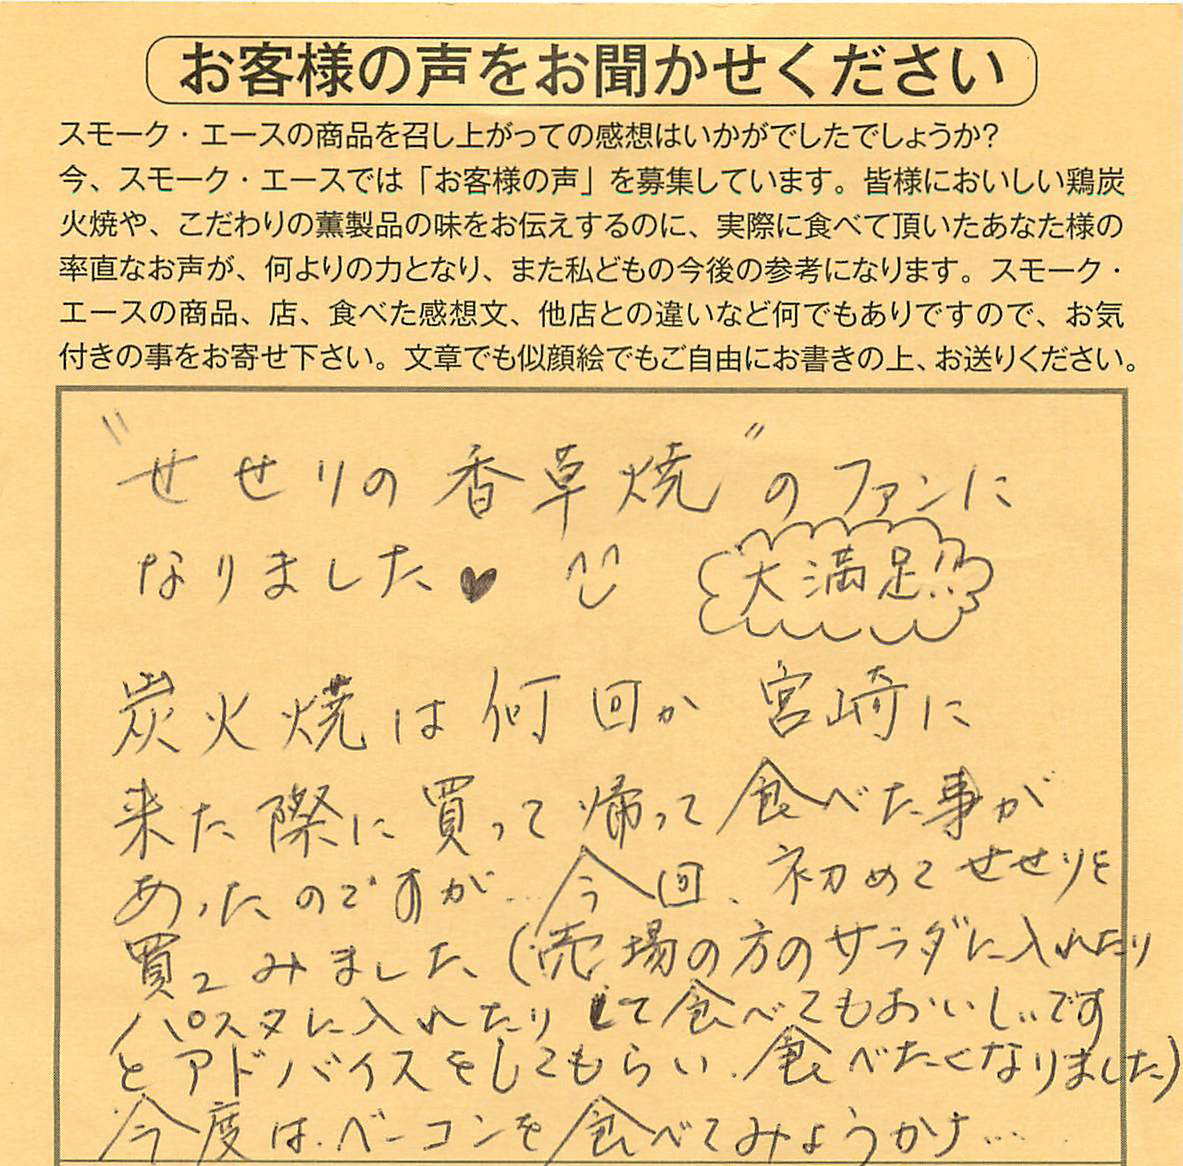 お客様の声をお聞かせください
スモーク・エースの商品を召し上がっての感想はいかがでしたでしょうか?
今、スモーク・エースでは「お客様の声」を募集しています。皆様においしい鶏炭
火焼や、こだわりの薫製品の味をお伝えするのに、実際に食べて頂いたあなた様の
率直なお声が、何よりの力となり、また私どもの今後の参考になります。スモーク・
エースの商品、店、食べた感想文、他店との違いなど何でもありですので、お気
付きの事をお寄せ下さい。文章でも似顔絵でもご自由にお書きの上、お送りください。
"せせりの香草焼"のファンに
なりました♥
大満足!!
炭火焼は何回か宮崎に
来た際に買って帰って食べた事が
あったのですが…今回、初めてせせりを
買ってみました、(売場の方のサラダに入れたり
パスタに入れたりして食べてもおいしいです
とアドバイスをしてもらい、食べたくなりました)
今度は、ベーコンを食べてみようかナ…